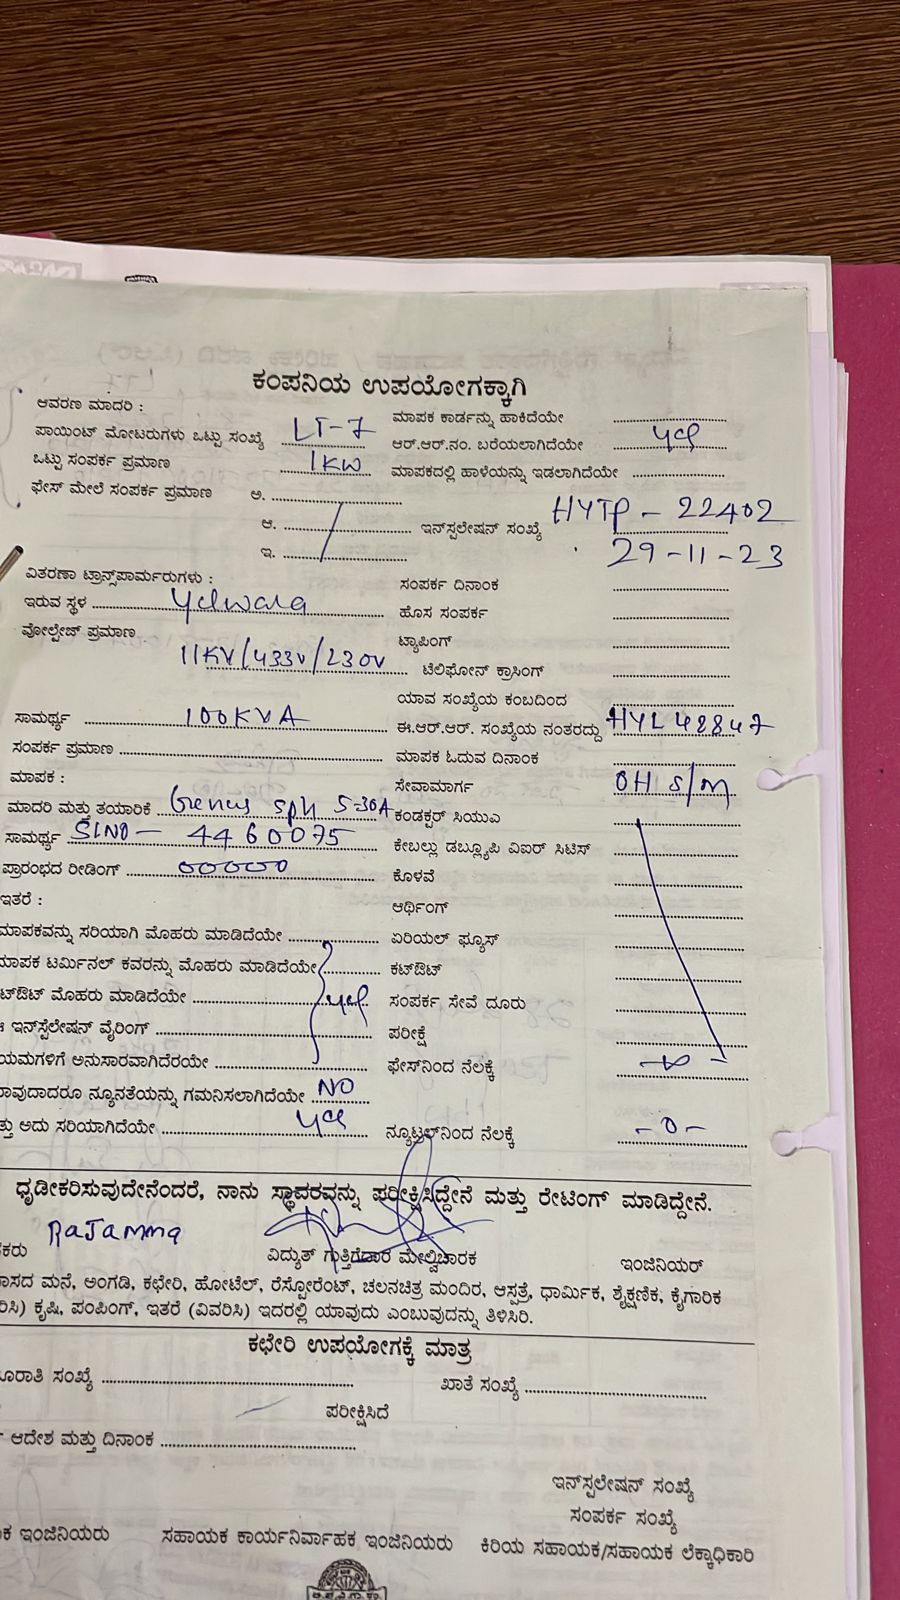 ಕಂಪನಿಯ ಉಪಯೋಗಕ್ಕಾಗಿ
ಆವರಣ ಮಾದರಿ : ಮಾಪಕ ಕಾರ್ಡನ್ನು ಹಾಕಿದೆಯೇ
ಪಾಯಿಂಟ್ ಮೋಟರುಗಳು ಒಟ್ಟು ಸಂಖ್ಯೆ LT-7 ಆರ್.ಆರ್.ನಂ. ಬರೆಯಲಾಗಿದೆಯೇ yes
ಒಟ್ಟು ಸಂಪರ್ಕ ಪ್ರಮಾಣ 1KW ಮಾಪಕದಲ್ಲಿ ಹಾಳೆಯನ್ನು ಇಡಲಾಗಿದೆಯೇ
ಫೇಸ್ ಮೇಲೆ ಸಂಪರ್ಕ ಪ್ರಮಾಣ ಅ.
ಆ. ಇನ್‌ಸ್ಪಲೇಷನ್ ಸಂಖ್ಯೆ HYTP - 22402
ಇ. 29-11-23
ವಿತರಣಾ ಟ್ರಾನ್ಸ್‌ಪಾರ್ಮರುಗಳು : ಸಂಪರ್ಕ ದಿನಾಂಕ
ಇರುವ ಸ್ಥಳ Yelwala ಹೊಸ ಸಂಪರ್ಕ
ವೋಲ್ಟೇಜ್ ಪ್ರಮಾಣ ಟ್ಯಾಪಿಂಗ್
11KV/433V/230V ಟೆಲಿಫೋನ್ ಕ್ರಾಸಿಂಗ್
ಯಾವ ಸಂಖ್ಯೆಯ ಕಂಬದಿಂದ
ಸಾಮರ್ಥ್ಯ 100KVA ಈ.ಆರ್.ಆರ್. ಸಂಖ್ಯೆಯ ನಂತರದ್ದು HYL 48847
ಸಂಪರ್ಕ ಪ್ರಮಾಣ ಮಾಪಕ ಓದುವ ದಿನಾಂಕ
ಮಾಪಕ : ಸೇವಾಮಾರ್ಗ OH S/M
ಮಾದರಿ ಮತ್ತು ತಯಾರಿಕೆ Genus sph 5-30A ಕಂಡಕ್ಟರ್ ಸಿಯುವಿ
ಸಾಮರ್ಥ್ಯ SLNO - 4460075 ಕೇಬಲ್ಲು ಡಬ್ಲ್ಯೂಪಿ ವಿಐರ್ ಸಿಟಿಸ್
ಪ್ರಾರಂಭದ ರೀಡಿಂಗ್ 00000 ಕೊಳವೆ
ಇತರೆ : ಆರ್ಥಿಂಗ್
ಮಾಪಕವನ್ನು ಸರಿಯಾಗಿ ಮೊಹರು ಮಾಡಿದೆಯೇ ಏರಿಯಲ್ ಫ್ಯೂಸ್
ಮಾಪಕ ಟರ್ಮಿನಲ್ ಕವರನ್ನು ಮೊಹರು ಮಾಡಿದೆಯೇ ಕಟ್‌ಔಟ್
ಟ್‌ಔಟ್ ಮೊಹರು ಮಾಡಿದೆಯೇ yes ಸಂಪರ್ಕ ಸೇವೆ ದೂರು
ಇನ್‌ಸ್ಟಲೇಷನ್ ವೈರಿಂಗ್ ಪರೀಕ್ಷೆ
ಯಮಗಳಿಗೆ ಅನುಸಾರವಾಗಿದೆರಯೇ ಫೇಸ್‌ನಿಂದ ನೆಲಕ್ಕೆ
ಾವುದಾದರೂ ನ್ಯೂನತೆಯನ್ನು ಗಮನಿಸಲಾಗಿದೆಯೇ NO
ತ್ತು ಅದು ಸರಿಯಾಗಿದೆಯೇ yes ನ್ಯೂಟ್ರಲ್‌ನಿಂದ ನೆಲಕ್ಕೆ -0-
ಧೃಡೀಕರಿಸುವುದೇನೆಂದರೆ, ನಾನು ಸ್ಥಾವರವನ್ನು ಪರೀಕ್ಷಿಸಿದ್ದೇನೆ ಮತ್ತು ರೇಟಿಂಗ್ ಮಾಡಿದ್ದೇನೆ.
RaJamma
ಕರು ವಿದ್ಯುತ್ ಗುತ್ತಿಗೆದಾರ ಮೇಲ್ವಿಚಾರಕ ಇಂಜಿನಿಯರ್
ಾಸದ ಮನೆ, ಅಂಗಡಿ, ಕಛೇರಿ, ಹೋಟೆಲ್, ರೆಸ್ಟೋರೆಂಟ್, ಚಲನಚಿತ್ರ ಮಂದಿರ, ಆಸ್ಪತ್ರೆ, ಧಾರ್ಮಿಕ, ಶೈಕ್ಷಣಿಕ, ಕೈಗಾರಿಕ
ರಿಸಿ) ಕೃಷಿ, ಪಂಪಿಂಗ್, ಇತರೆ (ವಿವರಿಸಿ) ಇದರಲ್ಲಿ ಯಾವುದು ಎಂಬುವುದನ್ನು ತಿಳಿಸಿರಿ.
ಕಛೇರಿ ಉಪಯೋಗಕ್ಕೆ ಮಾತ್ರ
ೂರಾತಿ ಸಂಖ್ಯೆ ಖಾತೆ ಸಂಖ್ಯೆ
ಪರೀಕ್ಷಿಸಿದೆ
ಆದೇಶ ಮತ್ತು ದಿನಾಂಕ
ಇನ್‌ಸ್ಪಲೇಷನ್ ಸಂಖ್ಯೆ
ಸಂಪರ್ಕ ಸಂಖ್ಯೆ
ಕ ಇಂಜಿನಿಯರು ಸಹಾಯಕ ಕಾರ್ಯನಿರ್ವಾಹಕ ಇಂಜಿನಿಯರು ಕಿರಿಯ ಸಹಾಯಕ/ಸಹಾಯಕ ಲೆಕ್ಕಾಧಿಕಾರಿ